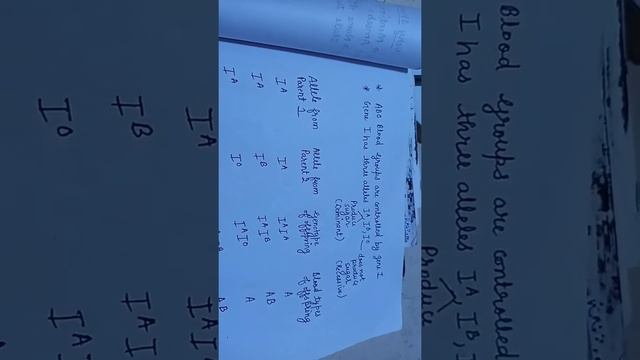 * ABO Blood groups are controlled by gene I
* Gene I has three alleles Iᴬ Iᴮ, Iᴼ
Produce sugar (Dominant)
does not produce sugar (Recessive)
Allele from Parent 1 Allele from Parent 2 Genotype of offspring Blood types of offspring
Iᴬ Iᴬ IᴬIᴬ A
Iᴬ Iᴮ IᴬIᴮ AB
Iᴬ Iᴼ IᴬIᴼ A
AB
Blood groups are controlled
I has three alleles Iᴬ Iᴮ,
Produce
Iᴬ IᴬI
Iᴮ IᴬI
Iᴼ IᴬI